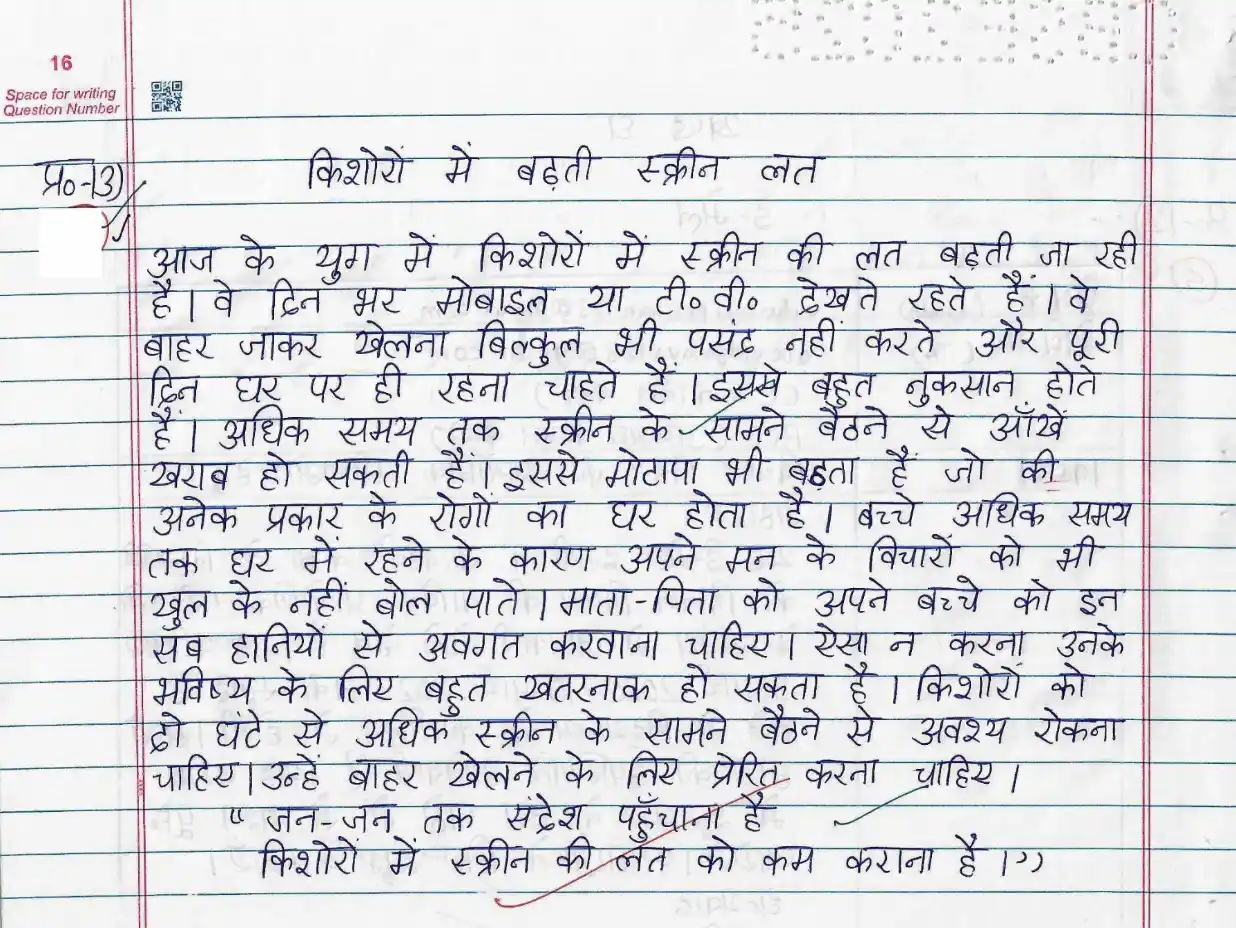 16
Space for writing
Question Number
प्र०-13)
किशोरों में बढ़ती स्क्रीन लत
आज के युग में किशोरों में स्क्रीन की लत बढ़ती जा रही
है। वे दिन भर मोबाइल या टी०वी० देखते रहते हैं। वे
बाहर जाकर खेलना बिल्कुल भी पसंद नहीं करते और पूरी
दिन घर पर ही रहना चाहते हैं। इससे बहुत नुकसान होते
हैं। अधिक समय तक स्क्रीन के सामने बैठने से आँखें
खराब हो सकती हैं। इससे मोटापा भी बढ़ता है जो की
अनेक प्रकार के रोगों का घर होता है। बच्चे अधिक समय
तक घर में रहने के कारण अपने मन के विचारों को भी
खुल के नहीं बोल पाते। माता-पिता को अपने बच्चे को इन
सब हानियों से अवगत करवाना चाहिए। ऐसा न करना उनके
भविष्य के लिए बहुत खतरनाक हो सकता है। किशोरों को
दो घंटे से अधिक स्क्रीन के सामने बैठने से अवश्य रोकना
चाहिए। उन्हें बाहर खेलने के लिए प्रेरित करना चाहिए।
" जन-जन तक संदेश पहुँचाना है
किशोरों में स्क्रीन की लत को कम कराना है।"